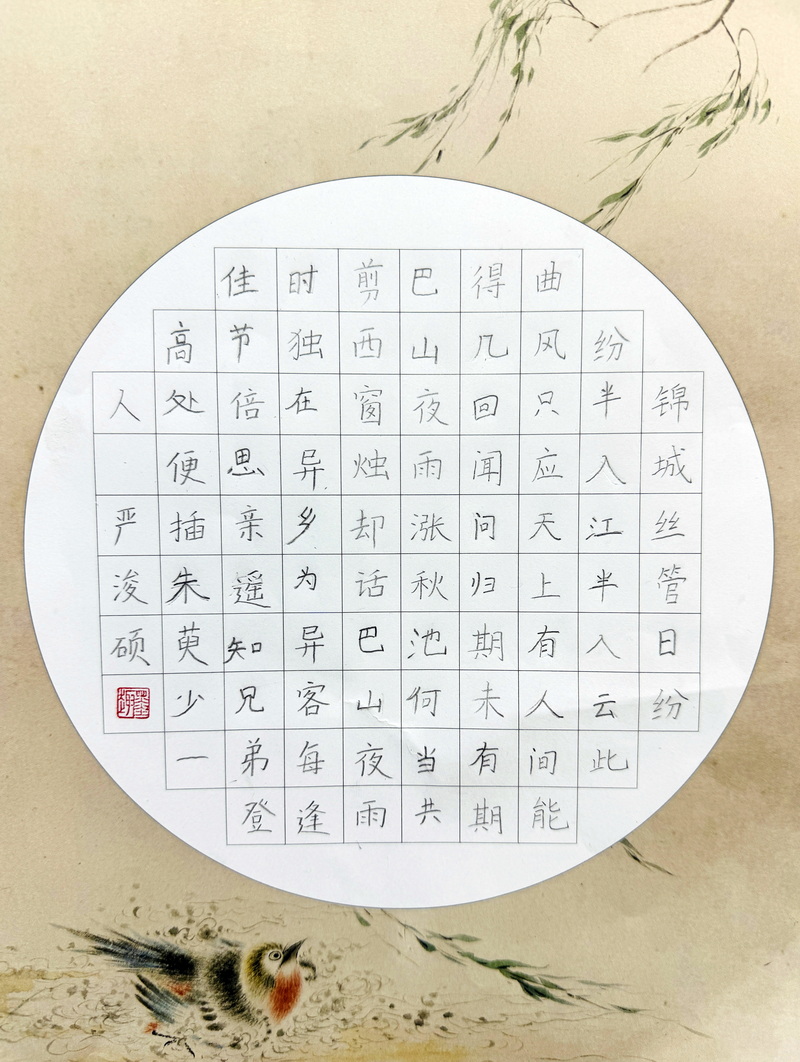 锦城丝管日纷
纷半入江半入云此
曲风只应天上有人间能
得几回闻问归期未有期
巴山夜雨涨秋池何当共
剪西窗烛却话巴山夜雨
时独在异乡为异客每逢
佳节倍思亲遥知兄弟登
高处便插朱萸少一
人 严浚硕
墨趣